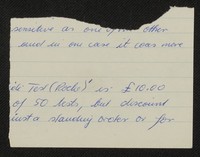 sensitive as one of the other
and in one case it was more
Test (Roche)' is £10.00
of 50 tests, but discount
a standing order or for